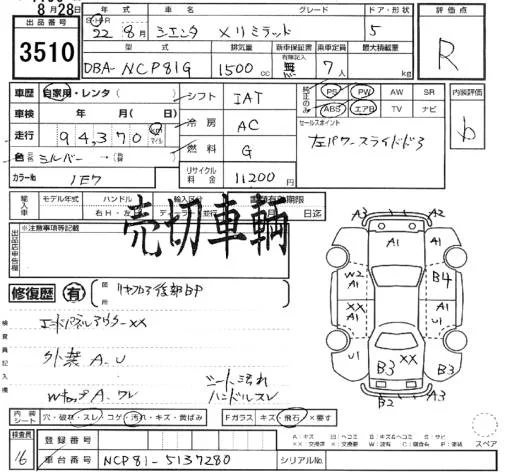 8月28日
出品番号
3510
年式 車名 グレード ドア・形状
22年8月 シエンタ Xリミテッド 5
型式 排気量 新車保証書 乗車定員 最大積載量
有限記入
DBA-NCP81G 1500cc 無 7人 kg
評価点
R
車歴 自家用・レンタ( )
シフト IAT
車検 年 月( 日)
冷房 AC
走行 94,370 km マイル
燃料 G
色 シルバー →( )
カラーNo 1E7
リサイクル料金 11200円
純正のみ PS PW AW SR
ABS エアB TV ナビ
セールスポイント
左パワースライドドア
内装評価
輸入車 モデル年式 ハンドル 輸入区分
右H・左 ディーラー・並行
月 日迄
売切車輌
※注意事項等記載
修復歴 有
箇所
検査員記入欄
エンドパネルアウターXX
外装 A.U
シート汚れ
ハンドルスレ
A3 A3
A1
W2 A1 A1 B4
XX A1 A1 U1
U1 B3 XX B3
B2 A3
内装シート 穴・破れ・スレ・コゲ・汚れ・キズ・黄ばみ
Fガラス キズ・飛石・×要す
検査員
16
登録番号
車台番号 NCP81-5137280
シリアルNo.
A:キズ U:ヘコミ B:キズ&ヘコミ S:サビ
XX:交換済 X:要交換 W:波有 C:腐食有 P:塗装
スペア